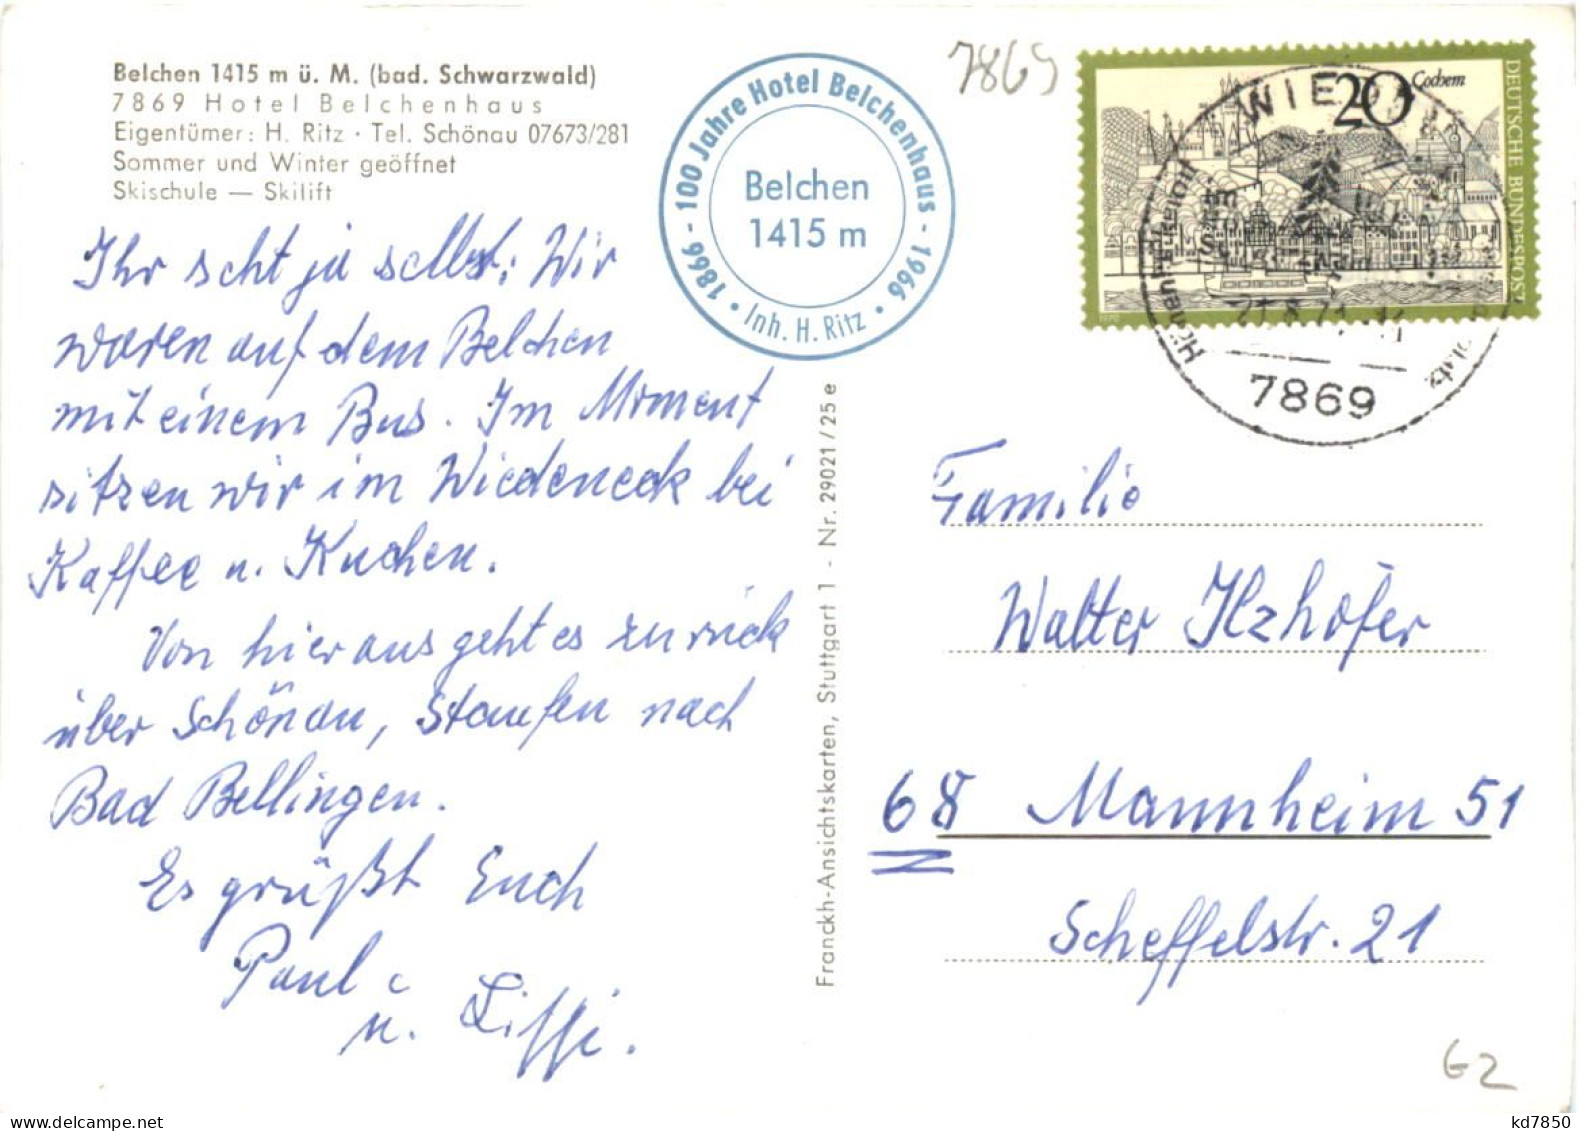 Belchen 1415 m ü. M. (bad. Schwarzwald)
7869 Hotel Belchenhaus
Eigentümer: H. Ritz · Tel. Schönau 07673/281
Sommer und Winter geöffnet
Skischule — Skilift
1866 - 100 Jahre Hotel Belchenhaus - 1966
Belchen
1415 m
• Inh. H. Ritz •
7869
20 Cochem
DEUTSCHE BUNDESPOST
1970
WIEDEN
7869
Ihr seht ja selbst: Wir
waren auf dem Belchen
mit einem Bus. Im Moment
sitzen wir im Wiedeneck bei
Kaffee u. Kuchen.
Von hier aus geht es zurück
über Schönau, Staufen nach
Bad Bellingen.
Es grüßt Euch
Paul
u.
Franckh-Ansichtskarten, Stuttgart 1 - Nr. 29021/25 e
Familie
Walter Ilzhöfer
68 Mannheim 51
Scheffelstr. 21
G2
kd7850